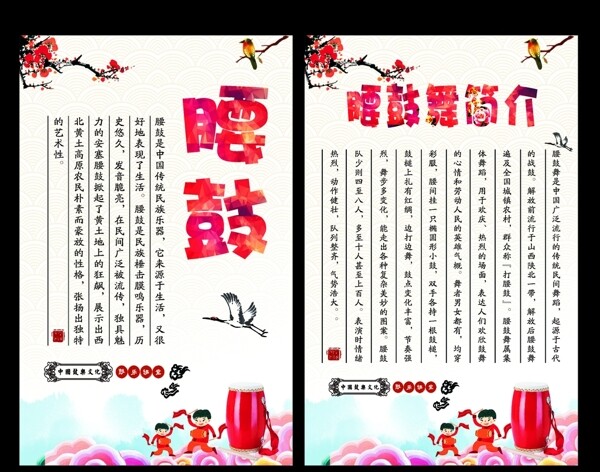 腰鼓
腰鼓是中国传统民族乐器，它来源于生活，又很
好地表现了生活。腰鼓是民族捶击膜鸣乐器，历
史悠久，发音脆亮，在民间广泛被流传，独具魅
力的安塞腰鼓掀起了黄土地上的狂飙，展示出西
北黄土高原农民朴素而豪放的性格，张扬出独特
的艺术性。
中國鼓樂文化
腰鼓舞简介
腰鼓舞是中国广泛流行的传统民间舞蹈，起源于古代
的战鼓。解放前流行于山西陕北一带，解放后腰鼓舞
遍及全国城镇农村，群众称“打腰鼓”。腰鼓舞属集
体舞蹈，用于欢庆、热烈的场面，表达人们欢欣鼓舞
的心情和劳动人民的英雄气概。舞者男女都有，均穿
彩服，腰间挂一只椭圆形小鼓，双手各持一根鼓槌，
鼓槌上扎有红绸，边打边舞，鼓点变化丰富，节奏强
烈，舞步多变化，能走出各种复杂美妙的图案。腰鼓
队少则四至八人，多至十人甚至上百人。表演时情绪
热烈，动作健壮，队列整齐，气势浩大。
中國鼓樂文化